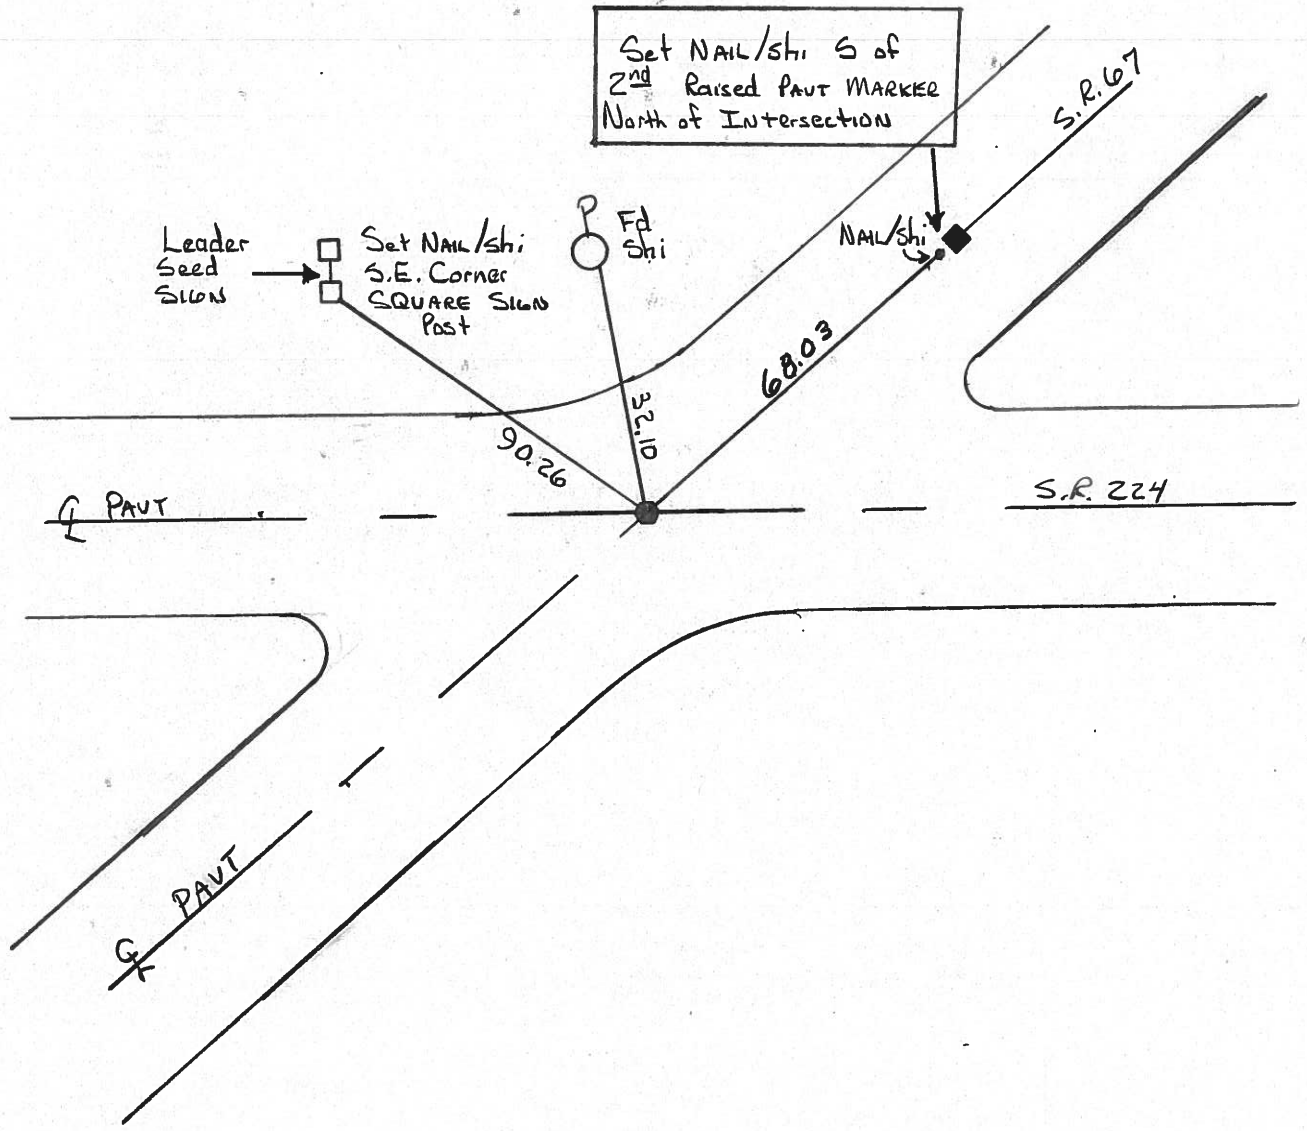 Set NAIL/shi S of
2nd Raised PAVT MARKER
North of INtersECTION
S.R. 67
P
Fd
Shi
Leader
Seed
SIGN
Set NAIL/shi
S.E. Corner
SQUARE SIGN
Post
NAIL/shi
68.03
32.10
90.26
S.R. 224
℄ PAVT
℄ PAVT